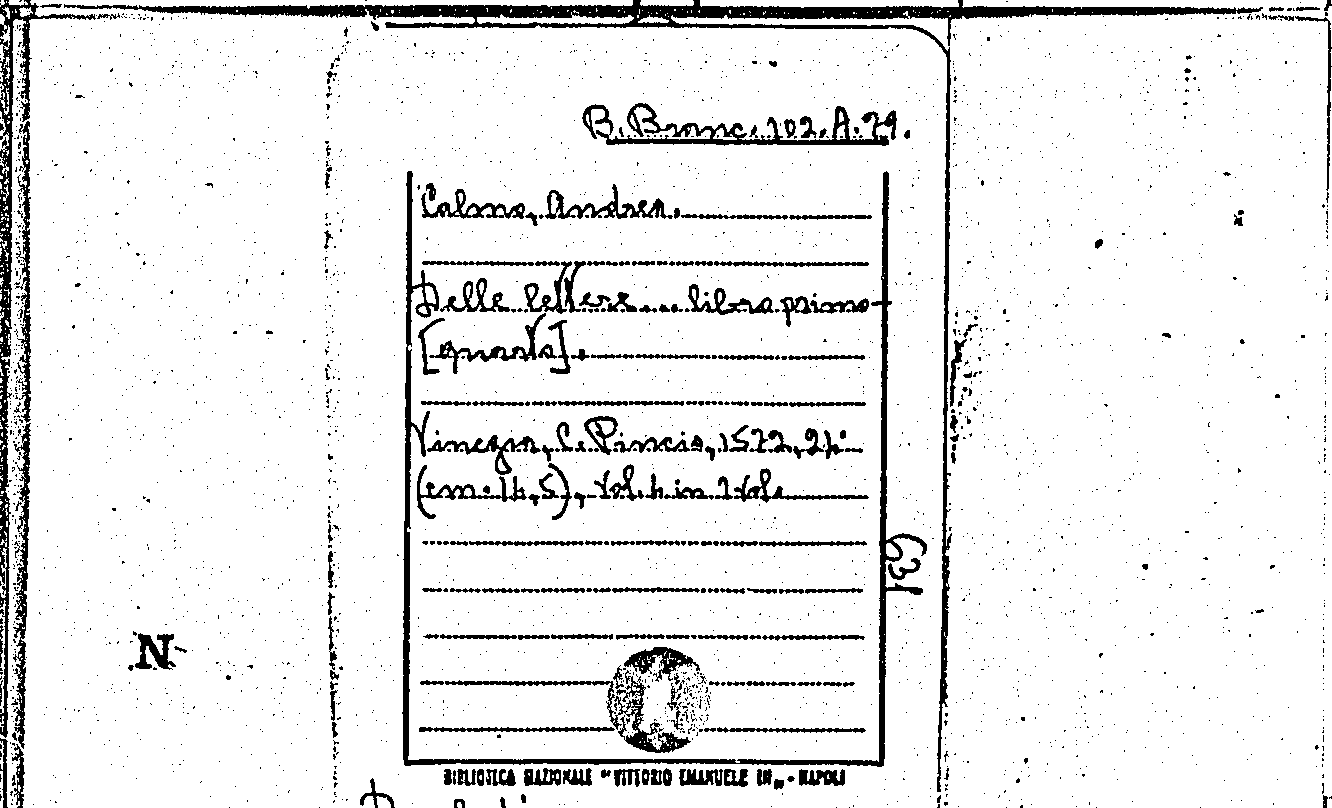 B. Branc. 102. A. 79.
Calmo, Andrea.
Delle lettere... libro primo-
[quarto].
Vinegia, C. Pincio, 1572, 24°
(cm. 14,5), vol. 4 in 1 vol.
N
BIBLIOTECA NAZIONALE "VITTORIO EMANUELE III" - NAPOLI